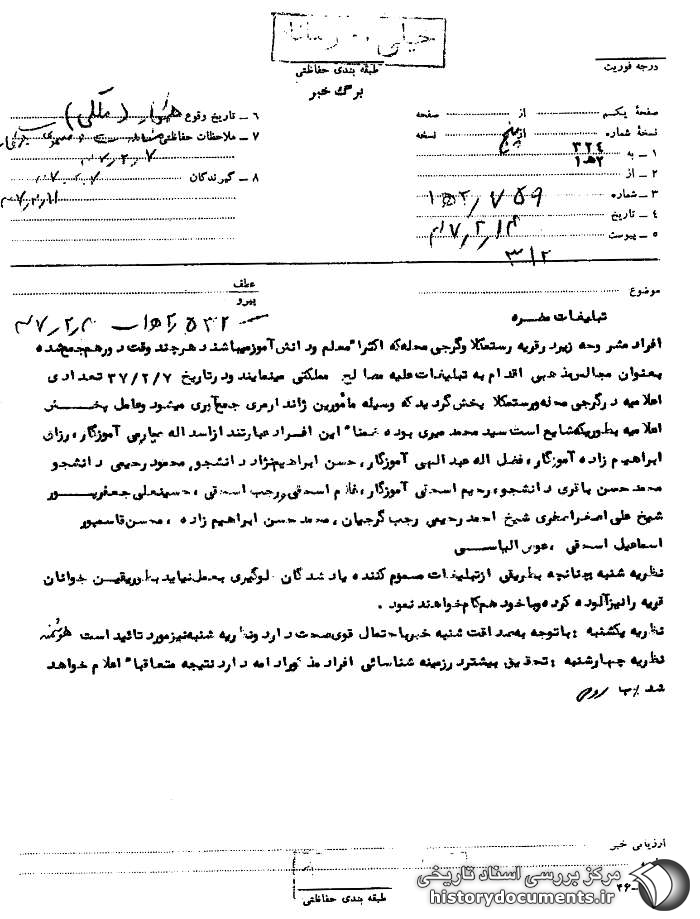 خیلی محرمانه
طبقه بندی حفاظتی
درجه فوریت
برگ خبر
صفحهٔ یکم از صفحه
نسخهٔ شماره از پنج نسخه
۱ ـ به ۳۲۴
۲ ـ از ۱ھ۲
۳ ـ شماره ۱ھ۲/۷۵۹
۴ ـ تاریخ ۳۷/۲/۱۴
۵ ـ پیوست
۳۱۲
۶ ـ تاریخ وقوع
۷ ـ ملاحظات حفاظتی
۸ ـ گیرندگان
موضوع
عطف
پیرو
تبلیغات مضره
افراد مشروحه زیر در قریه رستمکلا وگرجی محله که اکثرا" معلم ودانش آموز میباشند هر چند وقت دورهم جمع شده
بعنوان مجالس مذهبی اقدام به تبلیغات علیه مصالح مملکتی مینمایند ودر تاریخ ۳۷/۲/۷ تعدادی
اعلامیه در گرجی محله ورستمکلا پخش گردید که وسیله مأمورین ژاندارمری جمع آوری میشود وعامل پخش
اعلامیه بطوریکه شایع است سید محمد میری بوده ضمنا" این افراد عبارتند از اسداله آموزگار، رزاق
ابراهیم زاده آموزگار، فضل اله عبدالهی آموزگار، حسن ابراهیم نژاد دانشجو، محمود رحیمی دانشجو
محمد حسن باقری دانشجو، رحیم اسحقی آموزگار، غلام اسحقی ورجب اسحقی ، حسینعلی جعفرپور
شیخ علی اصغر شیخ احمد رحیمی رجب گرجیان، محمد حسن ابراهیم زاده ، محسن قاسمپور
اسماعیل اسحقی ، عوض الیاسی
نظریه شنبه چنانچه بطریقی از تبلیغات مسموم کننده یاد شدگان جلوگیری بعمل نیاید بطور یقین جوانان
قریه را نیز آلوده کرده وبا خود هم گام خواهند نمود .
نظریه یکشنبه : با توجه به صداقت شنبه خبر با احتمال قوی صحت دارد ونظریه شنبه نیز مورد تائید است
نظریه چهارشنبه : تحقیق بیشتر در زمینه شناسائی افراد مذکور ادامه دارد نتیجه متعاقبا" اعلام خواهد
شد
ارزیابی خبر
طبقه بندی حفاظتی
مرکز بررسی اسناد تاریخی
historydocuments.ir